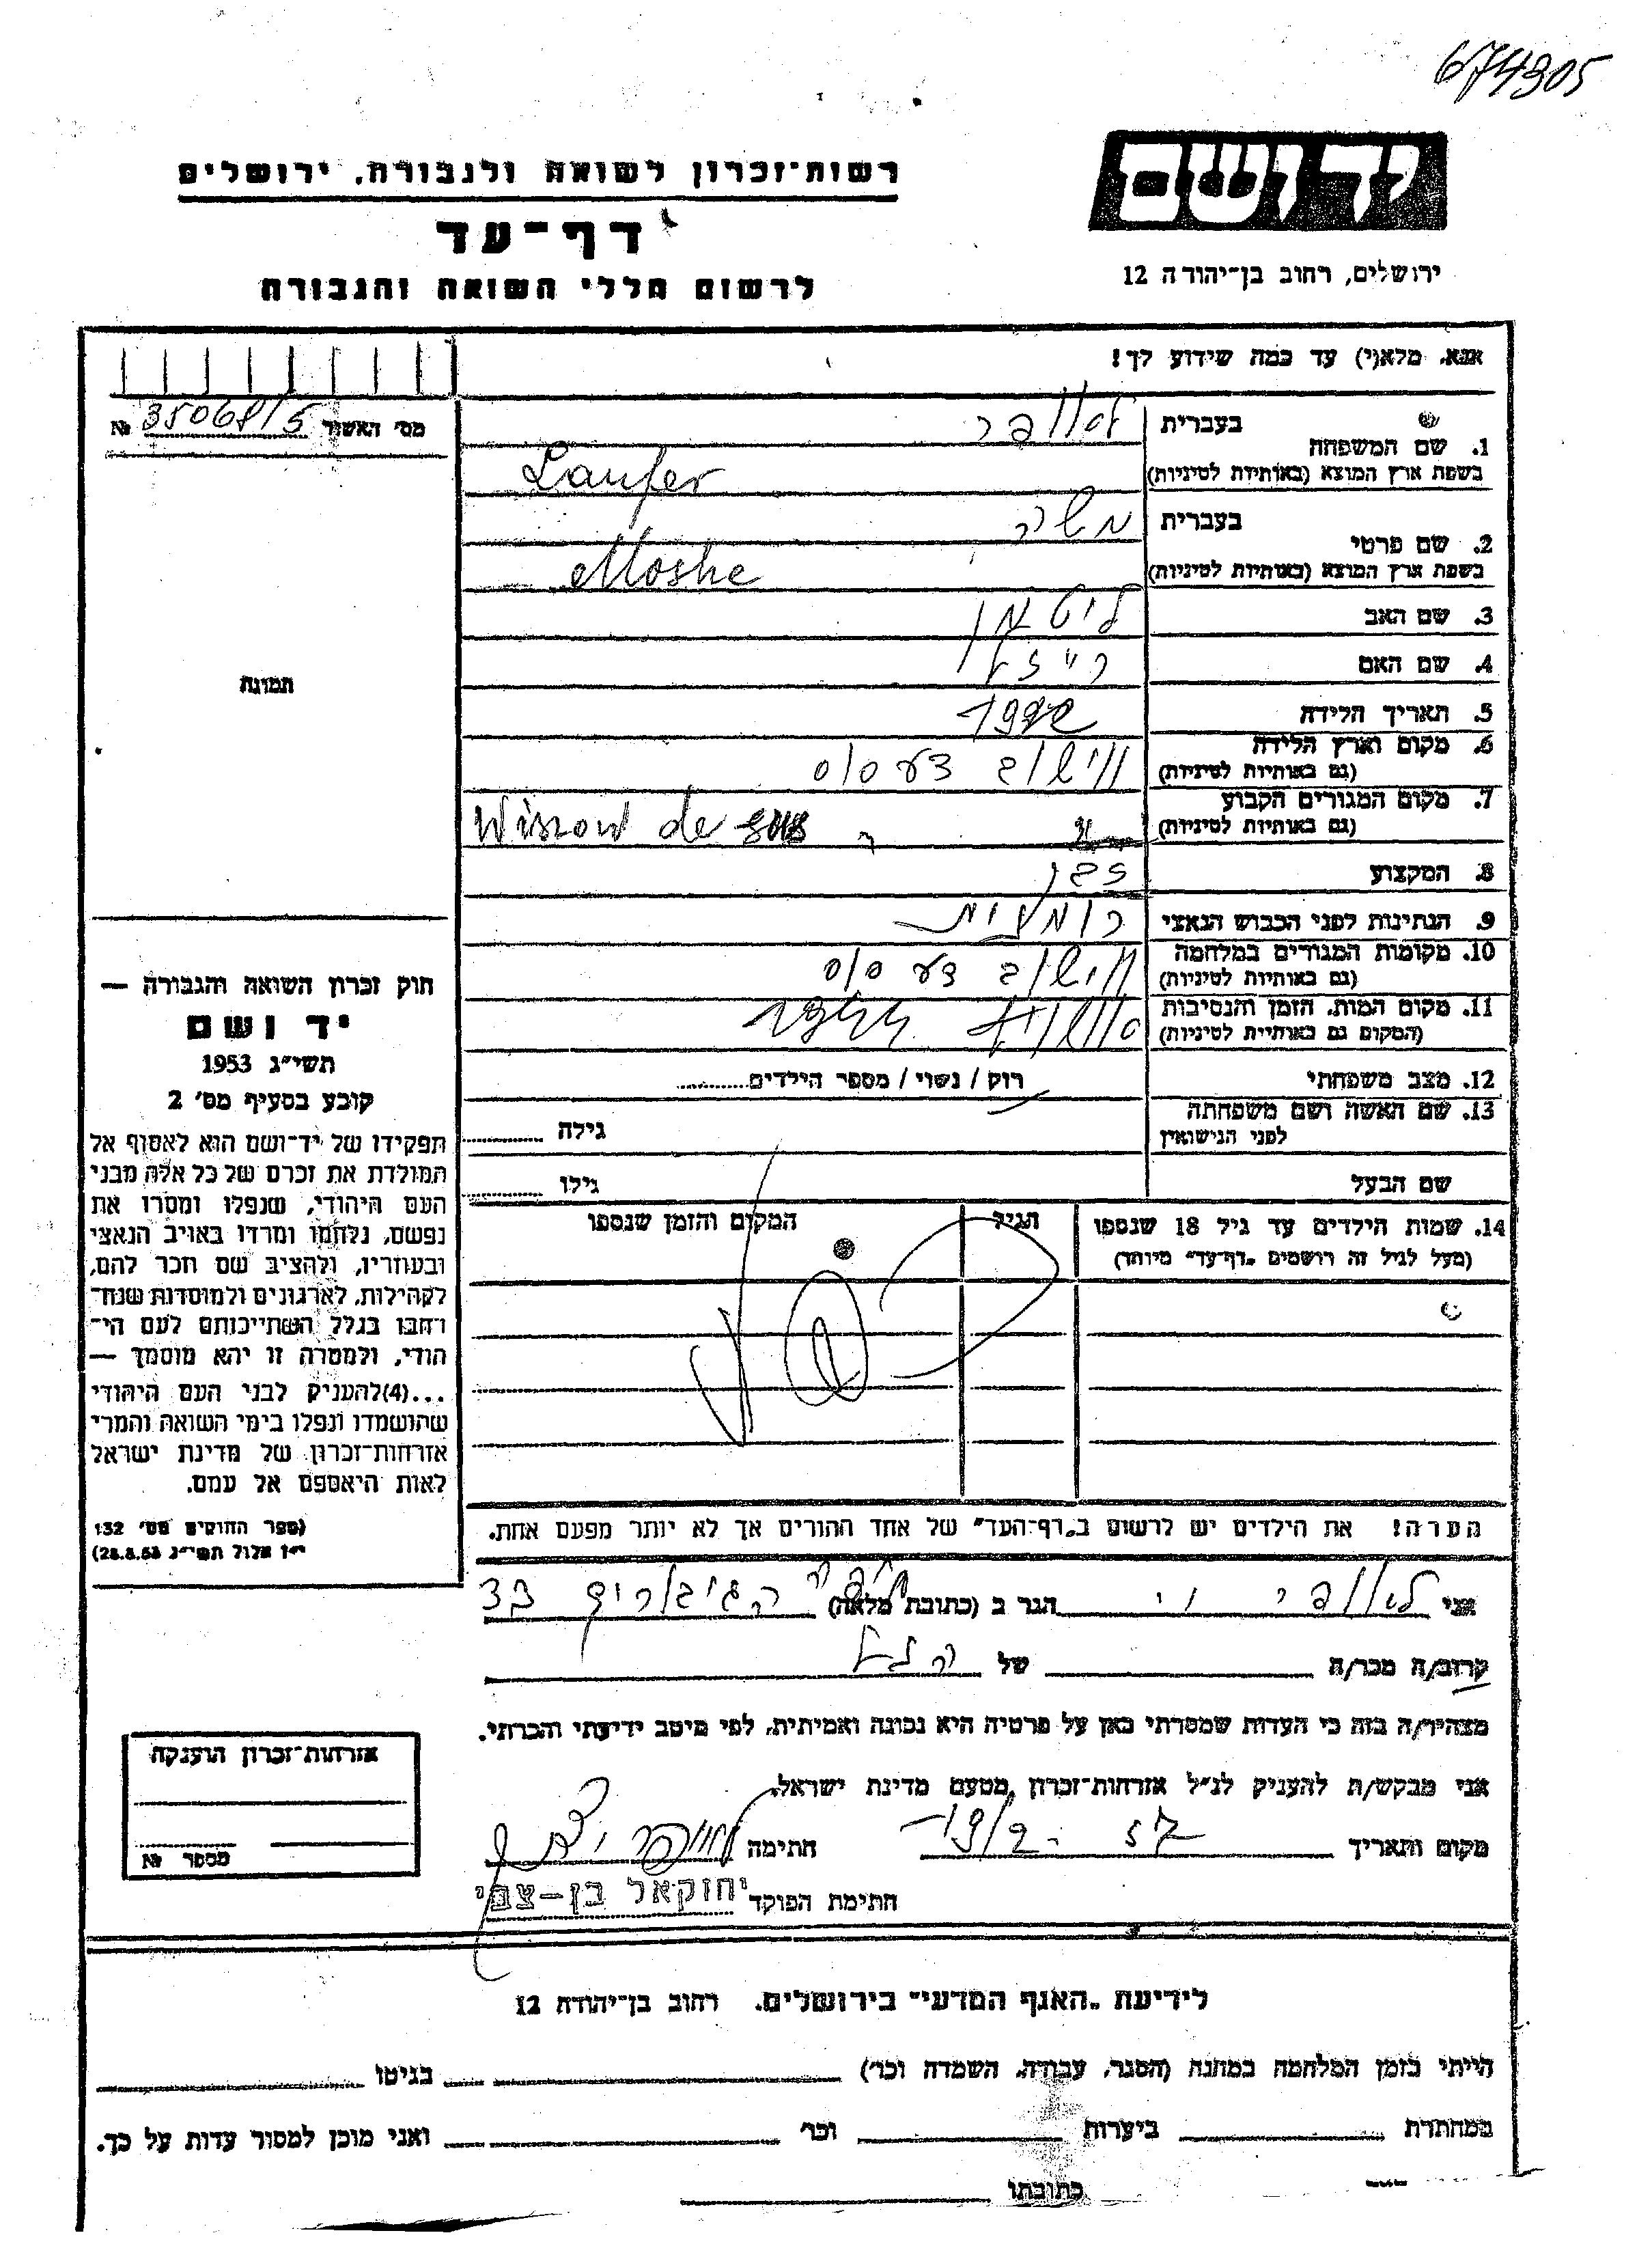 674305
יד ושם
רשות־זכרון לשואה ולגבורה, ירושלים
דף־עד
לרשום חללי השואה והגבורה
ירושלים, רחוב בן־יהודה 12
אנא, מלא(י) עד כמה שידוע לך!
מס' האשור 35068/5 №
1. שם המשפחה
בעברית לאופר
בשפת ארץ המוצא (באותיות לטיניות) Laufer
2. שם פרטי
בעברית משה
בשפת ארץ המוצא (באותיות לטיניות) Moshe
3. שם האב ליטמן
4. שם האם רייזל
5. תאריך הלידה
6. מקום וארץ הלידה
(גם באותיות לטיניות)ווישוב דע סוס
7. מקום המגורים הקבוע
(גם באותיות לטיניות) Wissow de sus
8. המקצוע
9. הנתינות לפני הכבוש הנאצי רומנית
10. מקומות המגורים במלחמה
(גם באותיות לטיניות)ווישוב דע סוס
11. מקום המות, הזמן והנסיבות
(המקום גם באותיות לטיניות) אושוויץ 1944
12. מצב משפחתי רוק / נשוי / מספר הילדים
13. שם האשה ושם משפחתה
לפני הנישואין
גילה
שם הבעל גילו
14. שמות הילדים עד גיל 18 שנספו
(מעל לגיל זה רושמים „דף־עד" מיוחד)
הגיל
המקום והזמן שנספו
תמונה
חוק זכרון השואה והגבורה —
יד ושם
תשי"ג 1953
קובע בסעיף מס' 2
תפקידו של יד־ושם הוא לאסוף אל
המולדת את זכרם של כל אלה מבני
העם היהודי, שנפלו ומסרו את
נפשם, נלחמו ומרדו באויב הנאצי
ובעוזריו, ולהציב שם וזכר להם,
לקהילות, לארגונים ולמוסדות שנח־
רבו בגלל השתייכותם לעם הי־
הודי, ולמטרה זו יהא מוסמך —
...(4)להעניק לבני העם היהודי
שהושמדו ונפלו בימי השואה והמרי
אזרחות־זכרון של מדינת ישראל
לאות היאספם אל עמם.
(ספר החוקים מס' 132
י"ז אלול תשי"ג 28.8.53)
הערה! את הילדים יש לרשום ב„דף־העד" של אחד ההורים אך לא יותר מפעם אחת.
אני לאופר הגר ב (כתובת מלאה)
קרוב/ה מכר/ה של הנ"ל
מצהיר/ה בזה כי העדות שמסרתי כאן על פרטיה היא נכונה ואמיתית, לפי מיטב ידיעתי והכרתי.
אני מבקש/ת להעניק לנ"ל אזרחות־זכרון מטעם מדינת ישראל.
מקום ותאריך 19/2. 57 חתימה
חתימת הפוקד יחזקאל בן-צבי
אזרחות־זכרון הוענקה
מספר №
לידיעת „האגף המדעי" בירושלים. רחוב בן־יהודה 12
הייתי בזמן המלחמה במחנה (הסגר, עבודה, השמדה וכו') בגיטו
במחתרת ביערות וכו' ואני מוכן למסור עדות על כך.
כתובתו